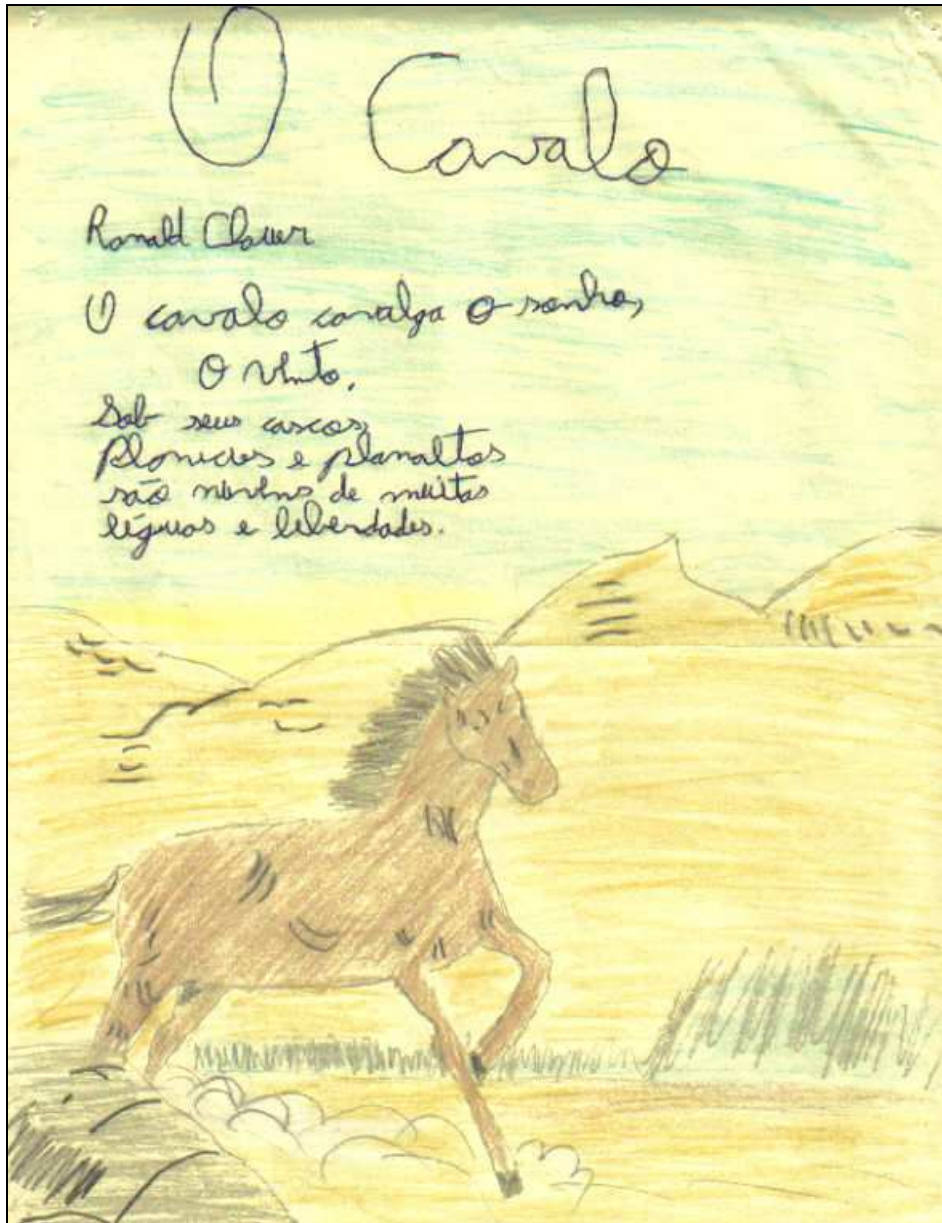 O Cavalo
Ronald Claver
O cavalo cavalga o sonho,
O vento.
Sob seus cascos,
Planícies e planaltos
são nuvens de muitas
léguas e liberdades.